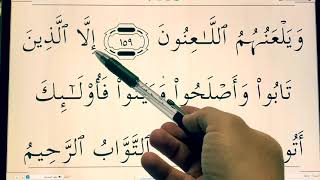 وَيَلْعَنُهُمُ ٱللَّـٰعِنُونَ ١٥٩ إِلَّا ٱلَّذِينَ
تَابُوا۟ وَأَصْلَحُوا۟ وَبَيَّنُوا۟ فَأُو۟لَـٰٓئِكَ
ٱلتَّوَّابُ ٱلرَّحِيمُ